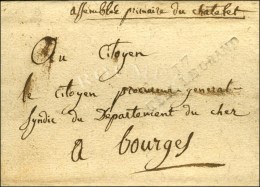 assemblée primaire du chatelet
Au Citoyen
le citoyen procureur general
Syndic de Département du cher
a bourges